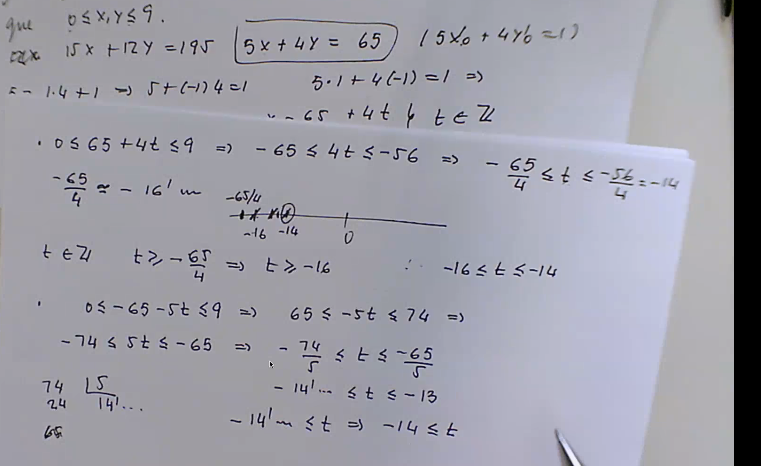 que 0 ≤ x, y ≤ 9.
15x + 12y = 195 5x + 4y = 65 (5x₀ + 4y₀ = 1)
= - 1·4 + 1 => 5 + (-1)4 = 1 5·1 + 4(-1) = 1 =>
65 + 4t t ∈ ℤ
· 0 ≤ 65 + 4t ≤ 9 => -65 ≤ 4t ≤ -56 => -65/4 ≤ t ≤ -56/4 = -14
-65/4 ≈ -16'... -65/4
-16 -14 0
t ∈ ℤ t ≥ -65/4 => t ≥ -16 ∴ -16 ≤ t ≤ -14
· 0 ≤ -65 - 5t ≤ 9 => 65 ≤ -5t ≤ 74 =>
-74 ≤ 5t ≤ -65 => -74/5 ≤ t ≤ -65/5
74 |5 -14'... ≤ t ≤ -13
24 14'... -14'... ≤ t => -14 ≤ t